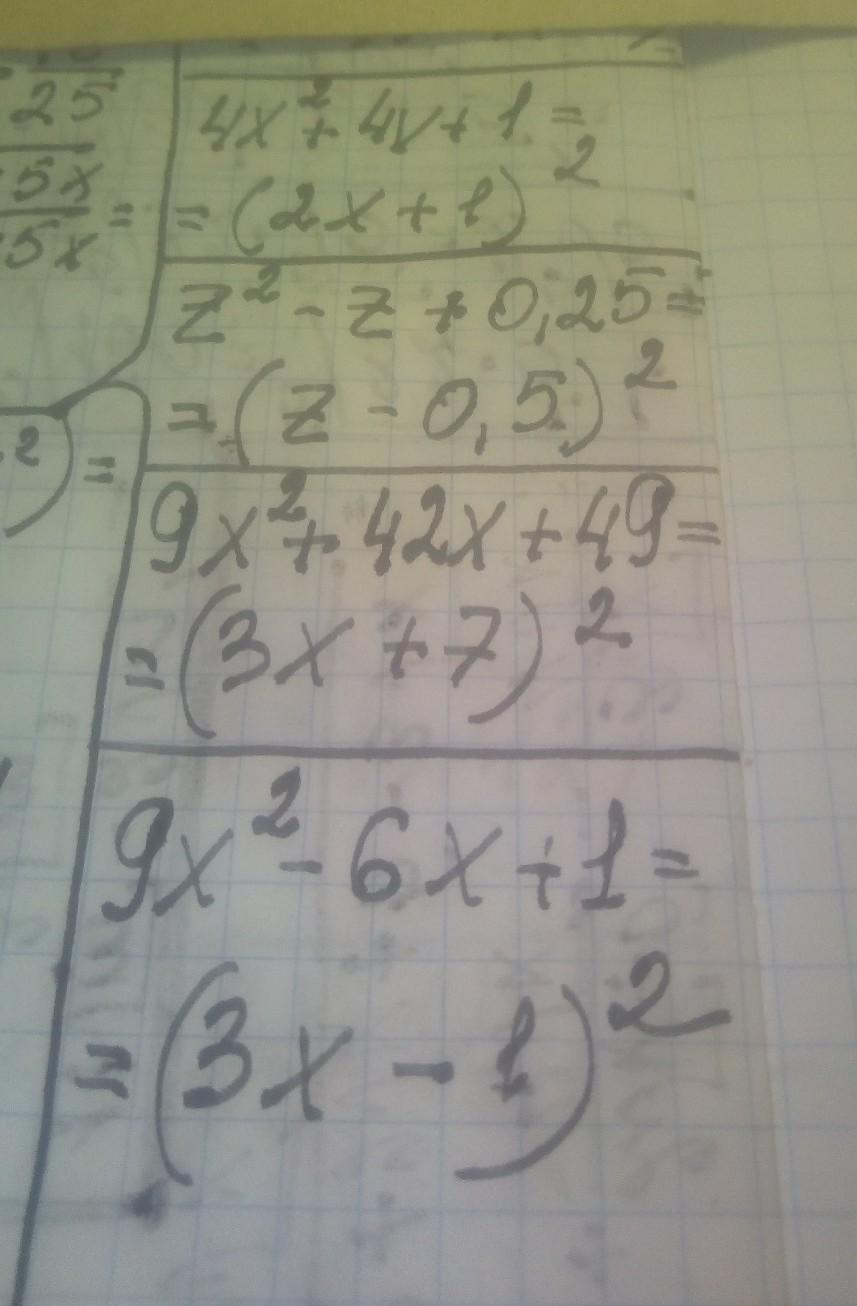 25
5x
5x =
²) =
4x² + 4x + 1 =
= (2x + 1)²
z² - z + 0,25 =
= (z - 0,5)²
9x² + 42x + 49 =
= (3x + 7)²
9x² - 6x + 1 =
= (3x - 1)²